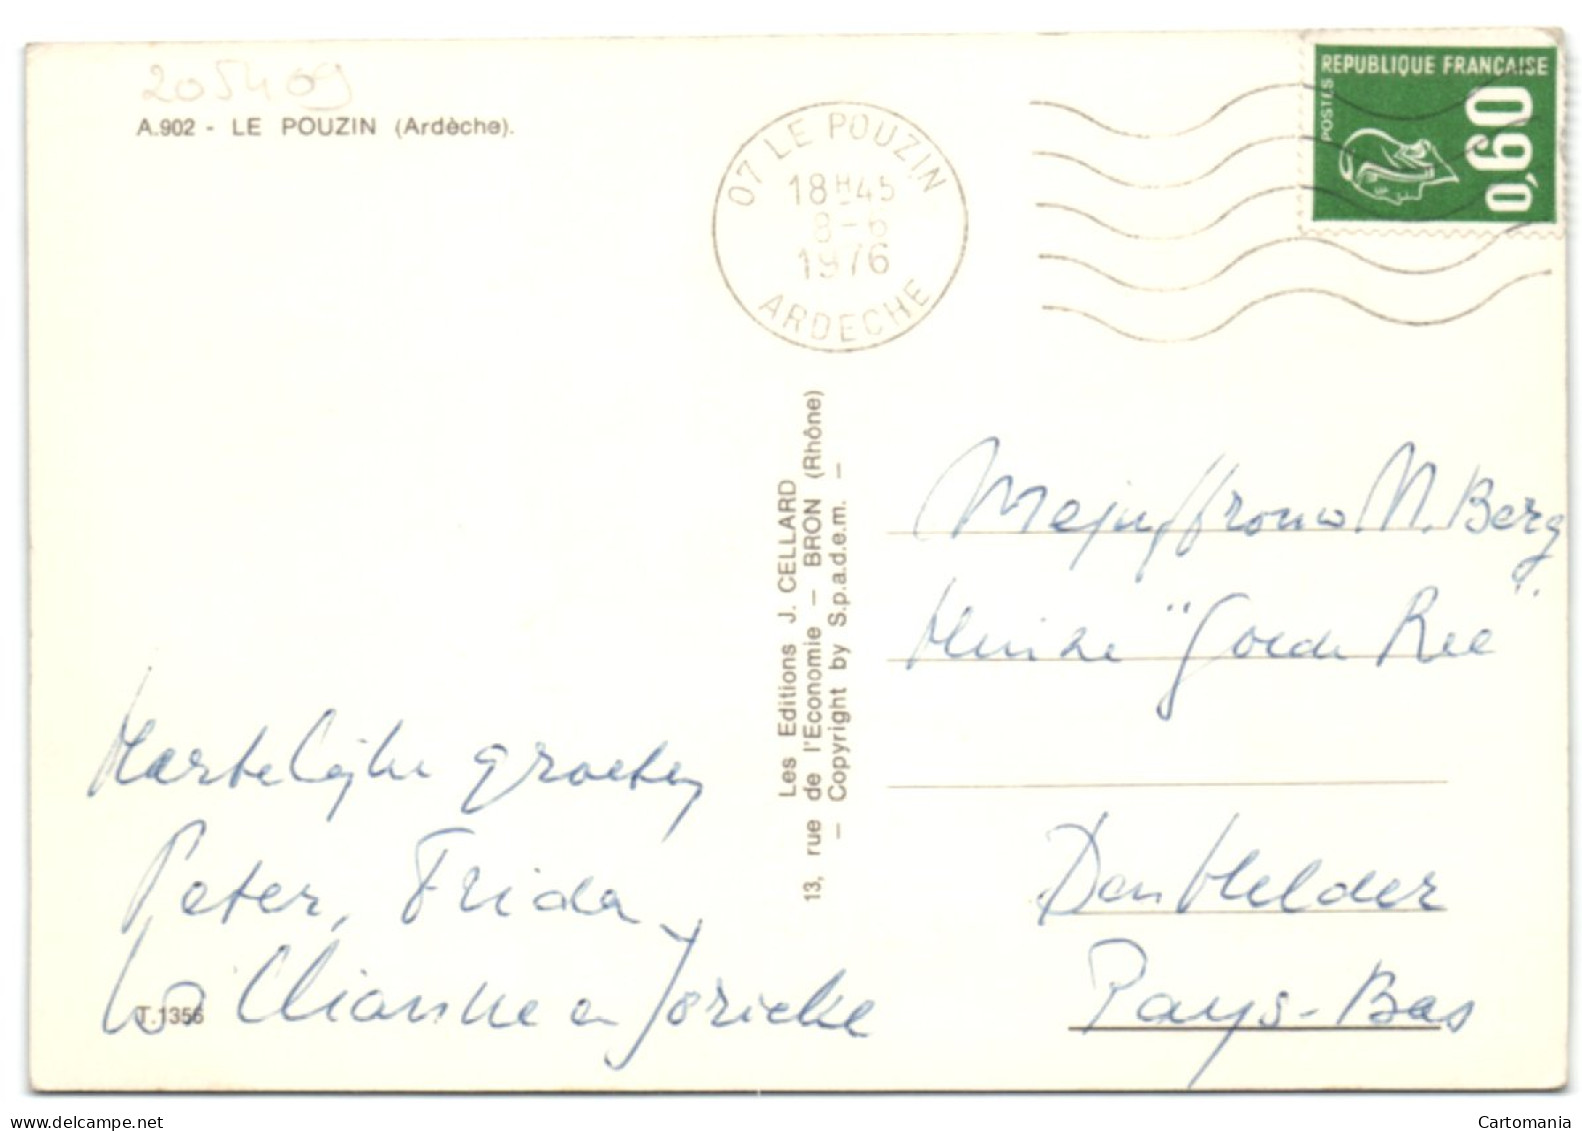 205409
A.902 - LE POUZIN (Ardèche).
07 LE POUZIN
18H45
8-6
1976
ARDECHE
REPUBLIQUE FRANÇAISE
POSTES
0,60
Les Editions J. CELLARD
13, rue de l'Economie - BRON (Rhône)
- Copyright by S.p.a.d.e.m. -
Hartelijke groeten
Peter, Frida,
Willianne en Joricke
T.1356
Mejuffrouw M. Berg
Huize "Goede Ree"
Den Helder
Pays-Bas
www.delcampe.net
Cartomania